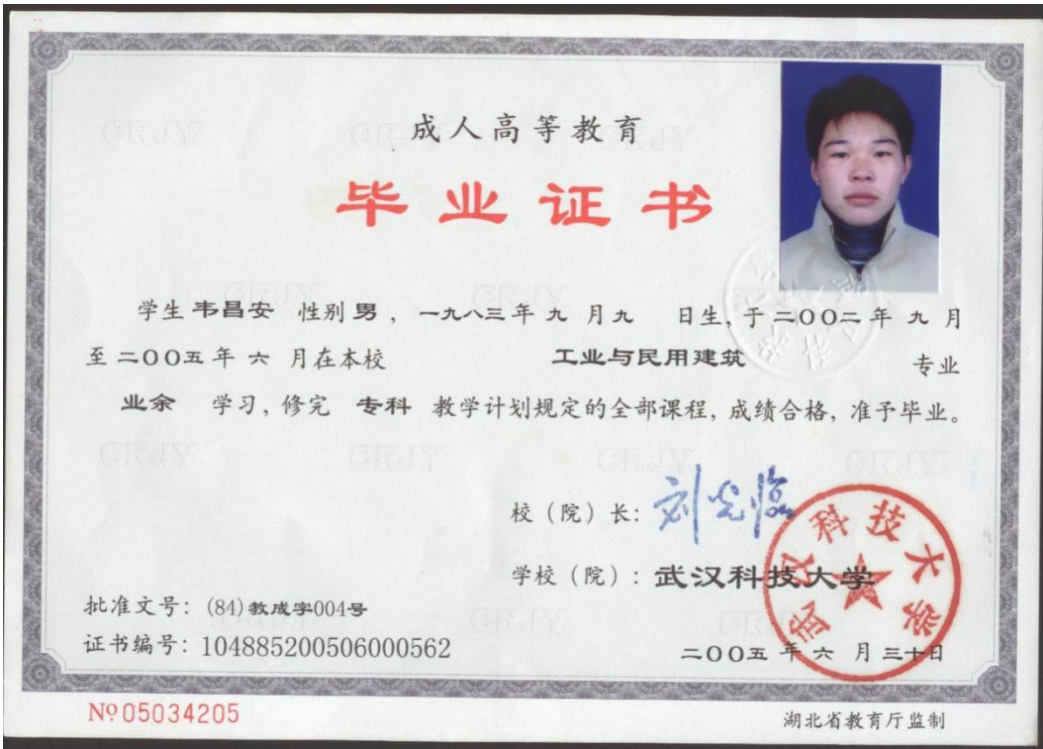 成人高等教育
毕业证书
学生 韦昌安 性别 男，一九八三年 九 月九 日生，于二〇〇二年 九 月
至二〇〇五年 六 月在本校 工业与民用建筑 专业
业余 学习，修完 专科 教学计划规定的全部课程，成绩合格，准予毕业。
校（院）长：刘光临
学校（院）：武汉科技大学
武汉科技大学
批准文号：(84)教成字004号
证书编号：104885200506000562
二〇〇五年 六 月 三十日
№05034205
湖北省教育厅监制